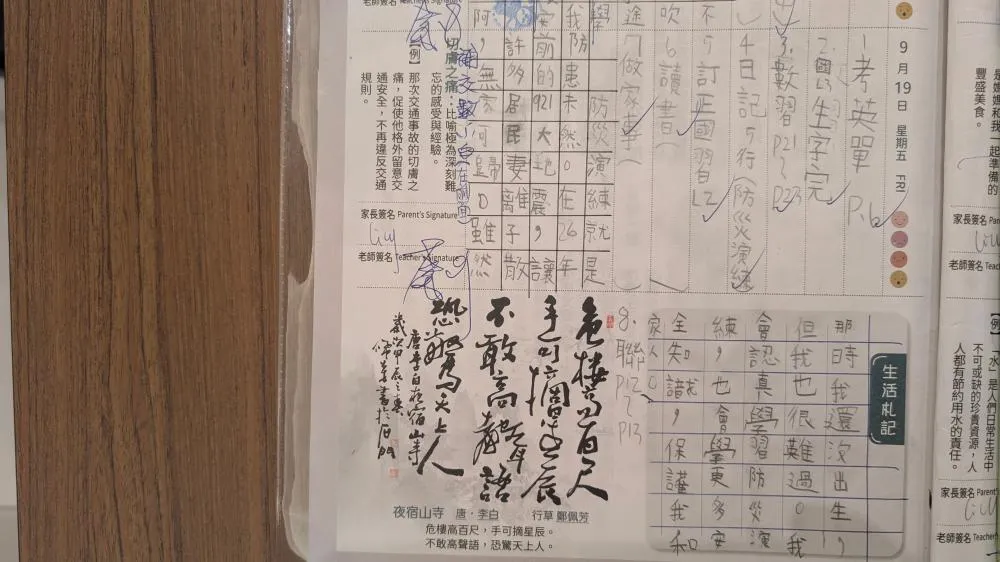 是媽媽和我一起準備的
豐盛美食。
家長簽名 Parent's
老師簽名 Teac
【例】「水」是人們日常生活中
不可或缺的珍貴資源，人
人都有節約用水的責任。
家長簽名 Parent
老師簽名 Teac
9月19日 星期五 FRI
1.考英單 P.6
2.國L3生字完
3.數習P21~P23
4.日記5行(防災演練)
5.訂正國習L2
6.讀書
7.做家事
8.聯P12~P13
學 防災演練就是
我防患未然。在26年
前的921大地震，讓
許多居民妻離子散
，無家可歸。雖然
補交數小白(在前面)
老師簽名 Teacher's Signature
切膚之痛：比喻極為深刻難
忘的感受與經驗。
【例】
那次交通事故的切膚之
痛，促使他格外留意交
通安全，不再違反交通
規則。
家長簽名 Parent's Signature
Lily
老師簽名 Teacher's Signature
生活札記
那時我還沒出生，
但我也很難過。我
會認真學習防災演
練，也會學更多安
全知識，保護我和
家人。
危樓高百尺
手可摘星辰
不敢高聲語
恐驚天上人
唐李白夜宿山寺
歲次甲辰之春
夜宿山寺 唐．李白 行草 鄭佩芳
危樓高百尺，手可摘星辰。
不敢高聲語，恐驚天上人。